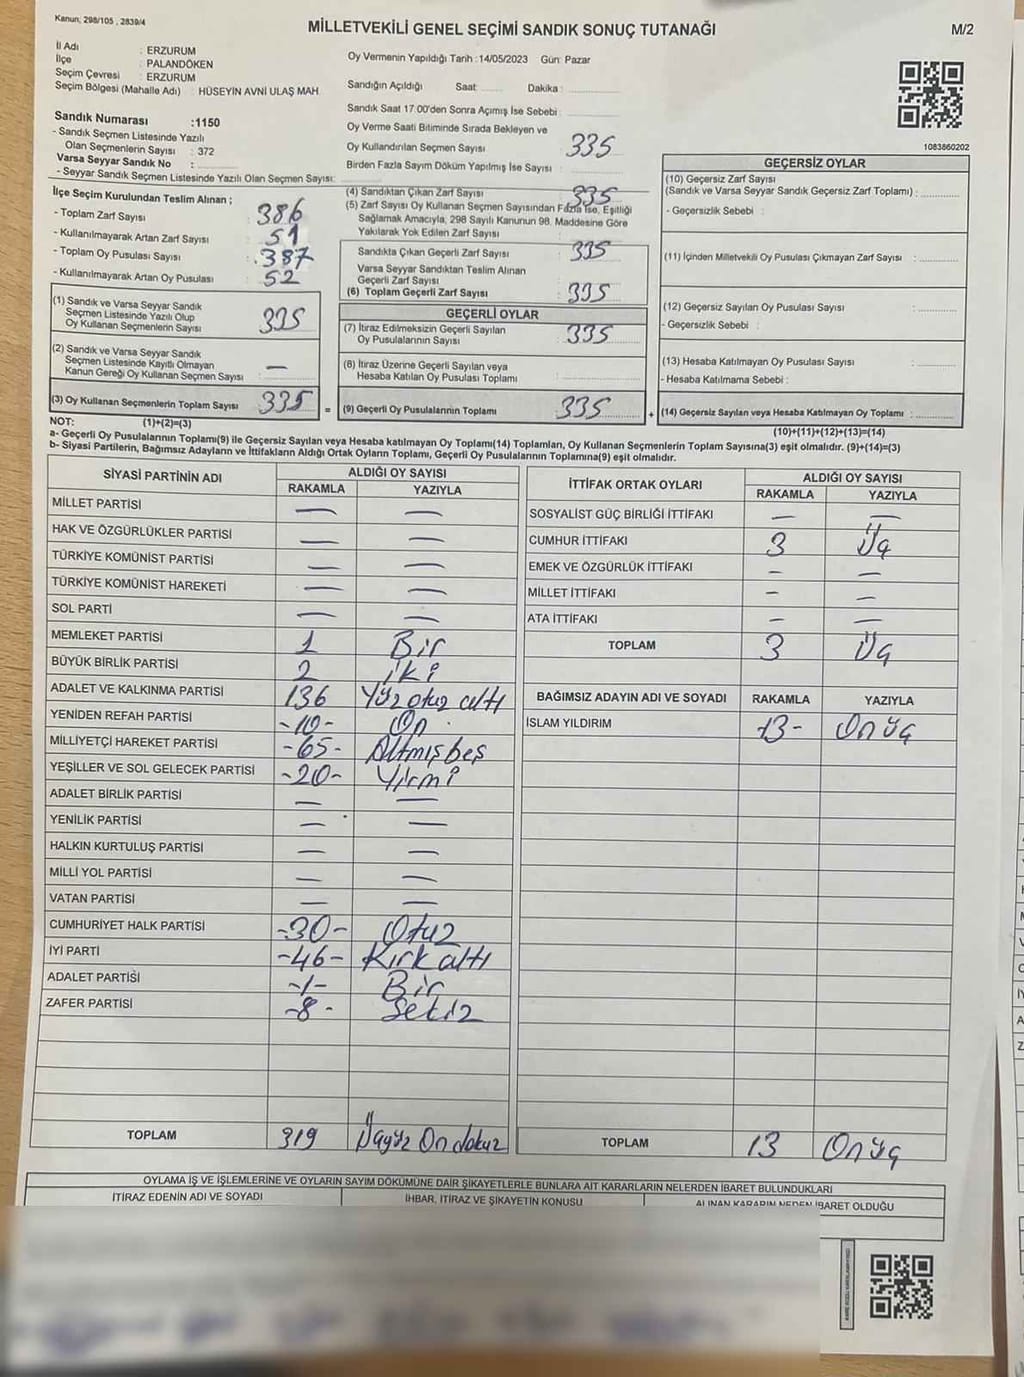 Kanun, 298/105 , 2839/4
MİLLETVEKİLİ GENEL SEÇİMİ SANDIK SONUÇ TUTANAĞI
M/2
İl Adı : ERZURUM
İlçe : PALANDÖKEN
Seçim Çevresi : ERZURUM
Seçim Bölgesi (Mahalle Adı) : HÜSEYİN AVNİ ULAŞ MAH.
Sandık Numarası :1150
- Sandık Seçmen Listesinde Yazılı
Olan Seçmenlerin Sayısı : 372
Varsa Seyyar Sandık No :
- Seyyar Sandık Seçmen Listesinde Yazılı Olan Seçmen Sayısı:
Oy Vermenin Yapıldığı Tarih :14/05/2023 Gün: Pazar
Sandığın Açıldığı Saat: Dakika :
Sandık Saat 17:00'den Sonra Açımış İse Sebebi :
Oy Verme Saati Bitiminde Sırada Bekleyen ve
Oy Kullandırılan Seçmen Sayısı : 335
Birden Fazla Sayım Döküm Yapılmış İse Sayısı :
1083860202
İlçe Seçim Kurulundan Teslim Alınan ;
- Toplam Zarf Sayısı : 386
- Kullanılmayarak Artan Zarf Sayısı : 51
- Toplam Oy Pusulası Sayısı : 387
- Kullanılmayarak Artan Oy Pusulası : 52
(1) Sandık ve Varsa Seyyar Sandık
Seçmen Listesinde Yazılı Olup
Oy Kullanan Seçmenlerin Sayısı : 335
(2) Sandık ve Varsa Seyyar Sandık
Seçmen Listesinde Kayıtlı Olmayan
Kanun Gereği Oy Kullanan Seçmen Sayısı : —
(3) Oy Kullanan Seçmenlerin Toplam Sayısı : 335 =
(4) Sandıktan Çıkan Zarf Sayısı : 335
(5) Zarf Sayısı Oy Kullanan Seçmen Sayısından Fazla İse, Eşitliği
Sağlamak Amacıyla, 298 Sayılı Kanunun 98. Maddesine Göre
Yakılarak Yok Edilen Zarf Sayısı :
Sandıkta Çıkan Geçerli Zarf Sayısı : 335
Varsa Seyyar Sandıktan Teslim Alınan
Geçerli Zarf Sayısı :
(6) Toplam Geçerli Zarf Sayısı : 335
GEÇERLİ OYLAR
(7) İtiraz Edilmeksizin Geçerli Sayılan
Oy Pusulalarının Sayısı : 335
(8) İtiraz Üzerine Geçerli Sayılan veya
Hesaba Katılan Oy Pusulası Toplamı :
(9) Geçerli Oy Pusulalarının Toplamı : 335 +
GEÇERSİZ OYLAR
(10) Geçersiz Zarf Sayısı
(Sandık ve Varsa Seyyar Sandık Geçersiz Zarf Toplamı) :
- Geçersizlik Sebebi :
(11) İçinden Milletvekili Oy Pusulası Çıkmayan Zarf Sayısı :
(12) Geçersiz Sayılan Oy Pusulası Sayısı :
- Geçersizlik Sebebi :
(13) Hesaba Katılmayan Oy Pusulası Sayısı :
- Hesaba Katılmama Sebebi :
(14) Geçersiz Sayılan veya Hesaba Katılmayan Oy Toplamı :
NOT: (1)+(2)=(3)
(10)+(11)+(12)+(13)=(14)
a- Geçerli Oy Pusulalarının Toplamı(9) ile Geçersiz Sayılan veya Hesaba katılmayan Oy Toplamı(14) Toplamları, Oy Kullanan Seçmenlerin Toplam Sayısına(3) eşit olmalıdır. (9)+(14)=(3)
b- Siyasi Partilerin, Bağımsız Adayların ve İttifakların Aldığı Ortak Oyların Toplamı, Geçerli Oy Pusulalarının Toplamına(9) eşit olmalıdır.
SİYASİ PARTİNİN ADI ALDIĞI OY SAYISI
RAKAMLA YAZIYLA
MİLLET PARTİSİ — —
HAK VE ÖZGÜRLÜKLER PARTİSİ — —
TÜRKİYE KOMÜNİST PARTİSİ — —
TÜRKİYE KOMÜNİST HAREKETİ — —
SOL PARTİ — —
MEMLEKET PARTİSİ 1 Bir
BÜYÜK BİRLİK PARTİSİ 2 iki
ADALET VE KALKINMA PARTİSİ 136 Yüz otuz altı
YENİDEN REFAH PARTİSİ -10- On
MİLLİYETÇİ HAREKET PARTİSİ -65- Altmış beş
YEŞİLLER VE SOL GELECEK PARTİSİ -20- Yirmi
ADALET BİRLİK PARTİSİ — —
YENİLİK PARTİSİ — —
HALKIN KURTULUŞ PARTİSİ — —
MİLLİ YOL PARTİSİ — —
VATAN PARTİSİ — —
CUMHURİYET HALK PARTİSİ -30- Otuz
İYİ PARTİ -46- Kırk altı
ADALET PARTİSİ -1- Bir
ZAFER PARTİSİ -8- Sekiz
TOPLAM 319 Üçyüz On dokuz
İTTİFAK ORTAK OYLARI ALDIĞI OY SAYISI
RAKAMLA YAZIYLA
SOSYALİST GÜÇ BİRLİĞİ İTTİFAKI — —
CUMHUR İTTİFAKI 3 Üç
EMEK VE ÖZGÜRLÜK İTTİFAKI — —
MİLLET İTTİFAKI — —
ATA İTTİFAKI — —
TOPLAM 3 Üç
BAĞIMSIZ ADAYIN ADI VE SOYADI RAKAMLA YAZIYLA
İSLAM YILDIRIM 13- Onüç
TOPLAM 13 Onüç
OYLAMA İŞ VE İŞLEMLERİNE VE OYLARIN SAYIM DÖKÜMÜNE DAİR ŞİKAYETLERLE BUNLARA AİT KARARLARIN NELERDEN İBARET BULUNDUKLARI
İTİRAZ EDENİN ADI VE SOYADI İHBAR, İTİRAZ VE ŞİKAYETİN KONUSU ALINAN KARARIN NEDEN İBARET OLDUĞU